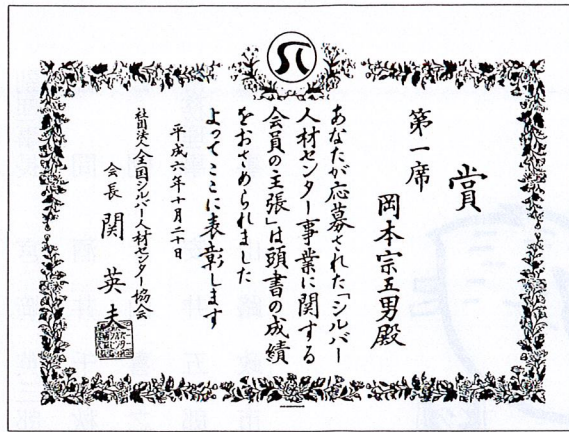 賞
第一席
岡本宗五男殿
あなたが応募された「シルバー
人材センター事業に関する
会員の主張」は頭書の成績
をおさめられました
よってここに表彰します
平成六年十月二十日
社団法人全国シルバー人材センター協会
会長 関 英夫